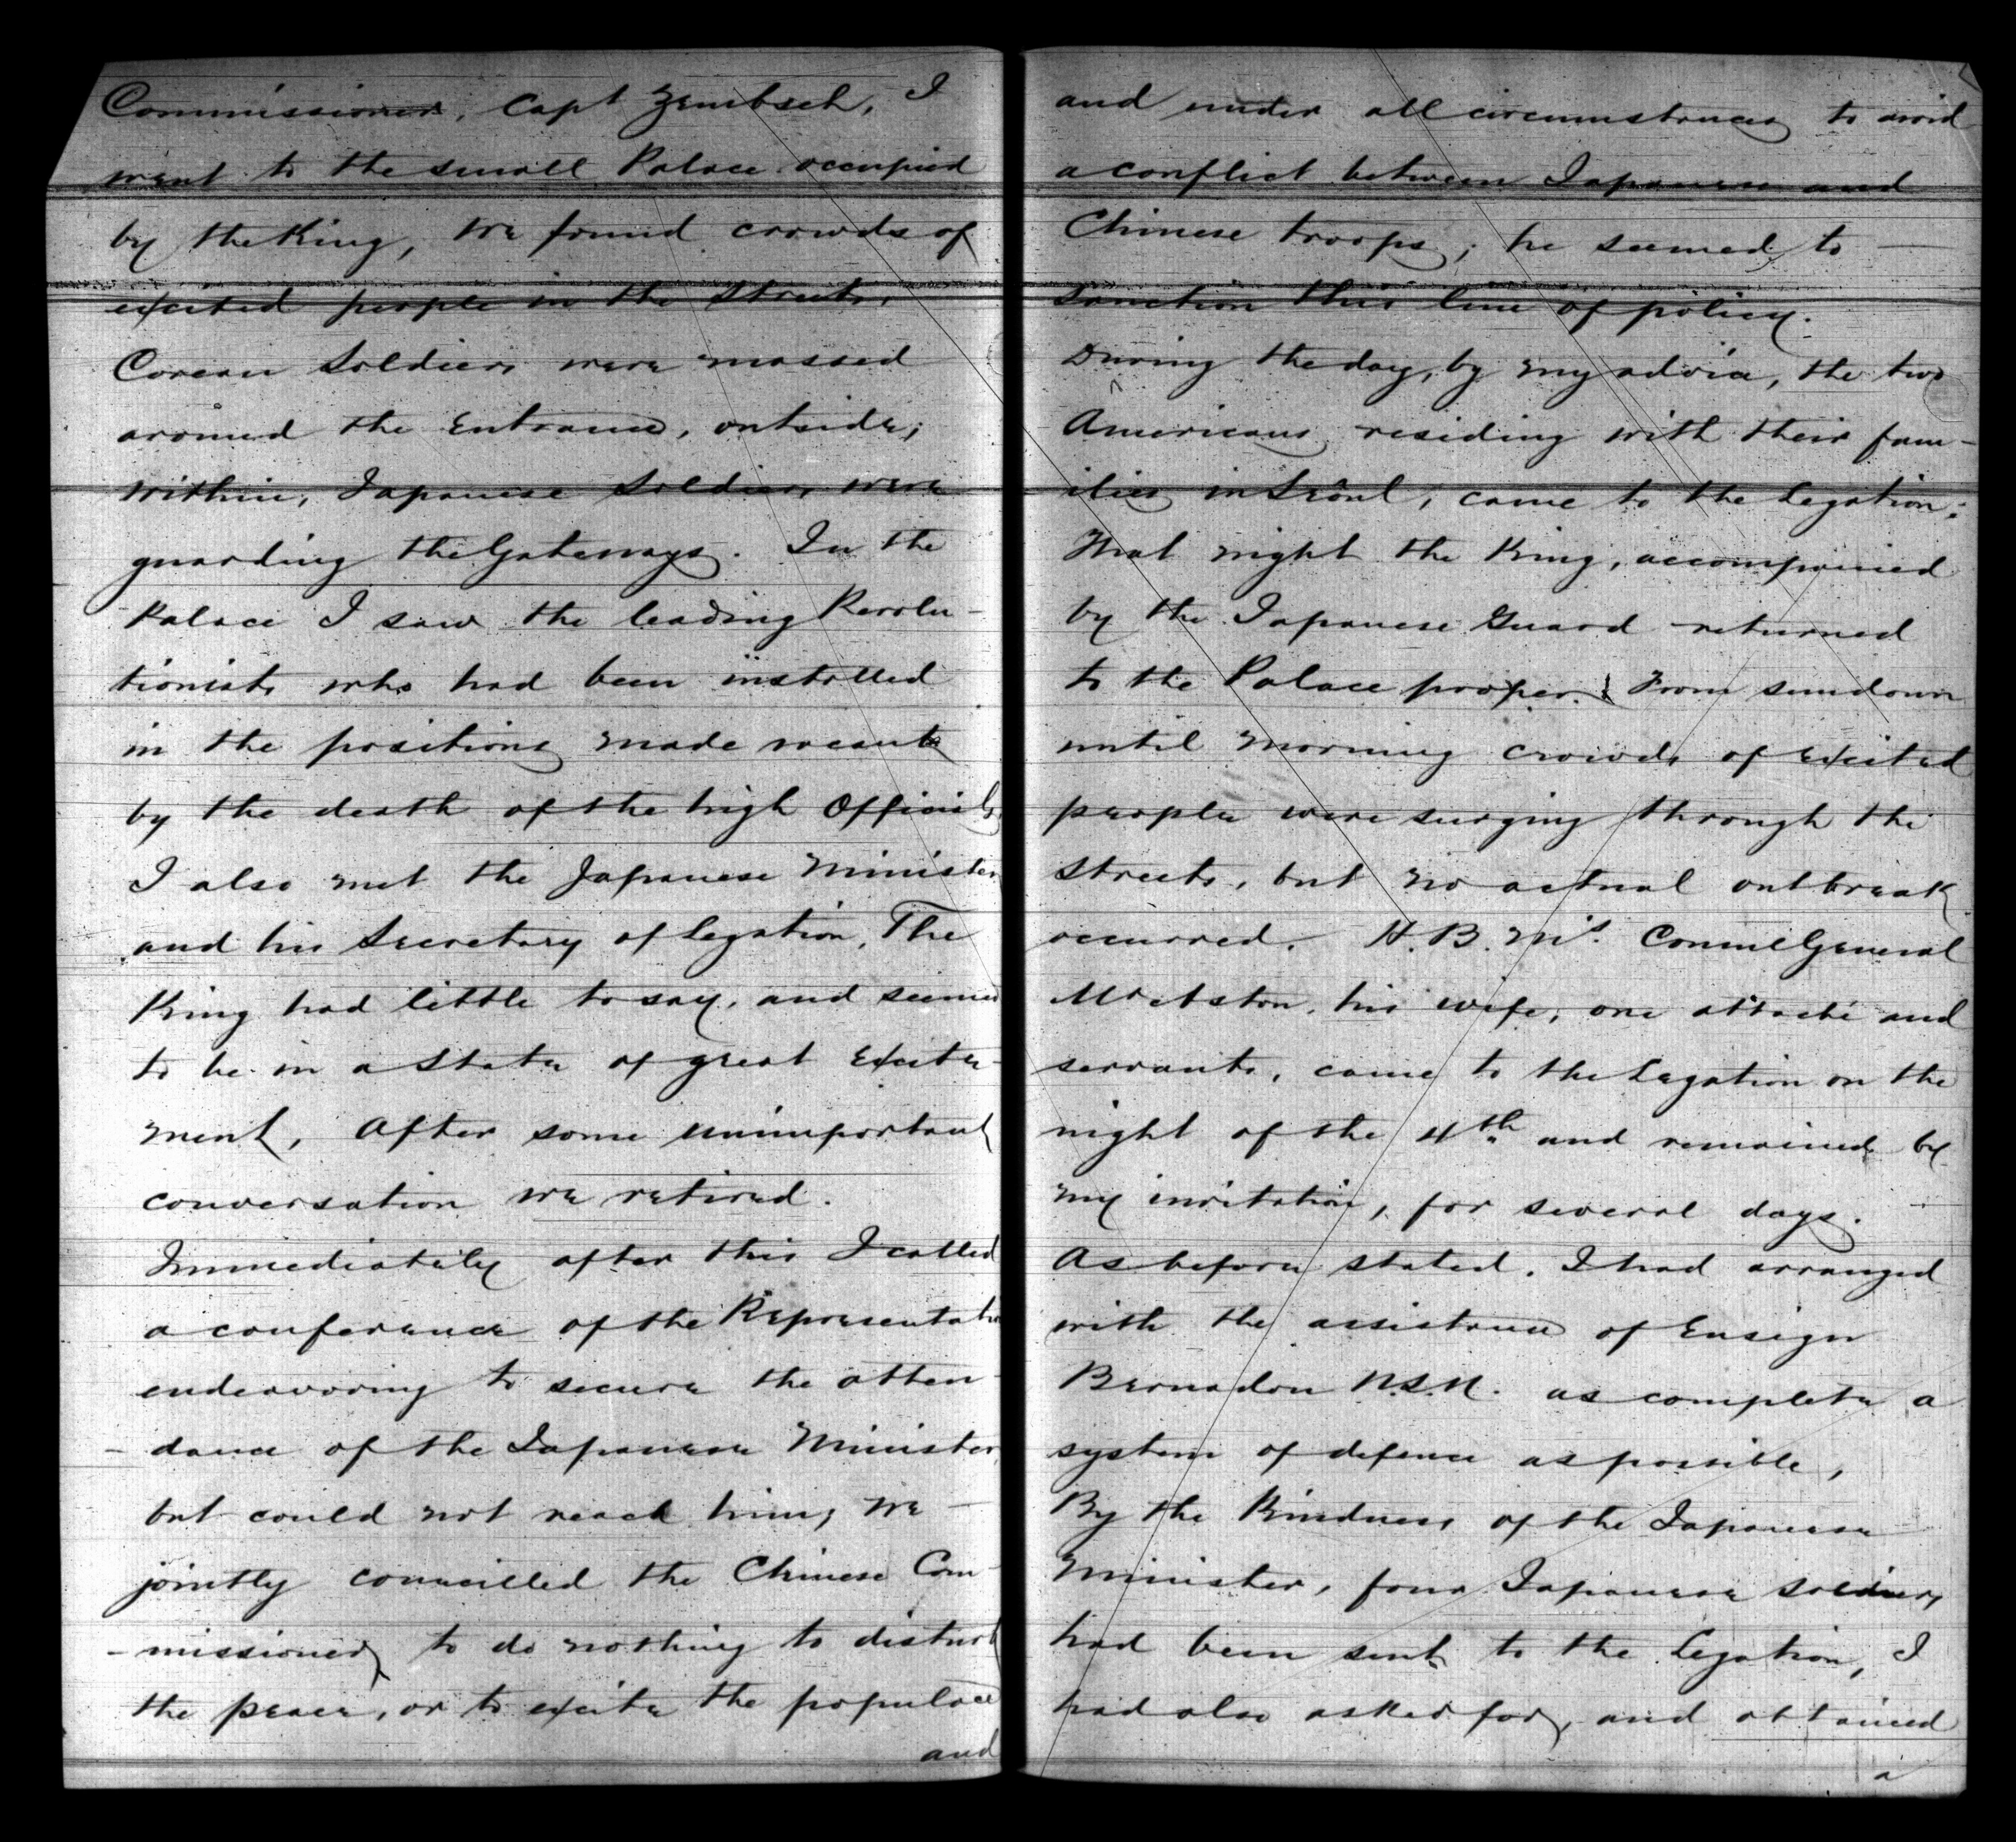 Commissioner, Capt Zembsch, I
went to the small Palace occupied
by the King, We found crowds of
excited people in the streets.
Corean Soldiers were massed
around the Entrance, outside;
within, Japanese Soldiers were
guarding the Gateways. In the
Palace I saw the leading Revolu-
tionists who had been installed
in the positions made vacant
by the death of the high Officials
I also met the Japanese Minister
and his Secretary of Legation, The
King had little to say, and seemed
to be in a state of great Excite-
ment, After some unimportant
conversation we retired.
Immediately after this I called
a conference of the Representatives
endeavoring to secure the atten-
-dance of the Japanese Minister,
but could not reach him; We
jointly councilled the Chinese Com-
-missioner, to do nothing to disturb
the peace, or to excite the populace
and
and under all circumstances to avoid
a conflict between Japanese and
Chinese troops; he seemed to
sanction this line of policy.
During the day, by my advice, the two
Americans residing with their fam-
ilies in Seoul, came to the Legation;
That night the King, accompanied
by the Japanese Guard returned
to the Palace proper. From sundown
until morning crowds of excited
people were surging through the
streets, but no actual outbreak
occurred. H.B.M's. Consul General
Mr Aston, his wife, one attaché and
servants, came to the Legation on the
night of the 4th and remained by
my invitation, for several days.
As before stated, I had arranged
with the assistance of Ensign
Bernadou U.S.N. as complete a
system of defence as possible,
By the Kindness of the Japanese
Minister, four Japanese soldiers
had been sent to the Legation, I
had also asked for, and obtained
a